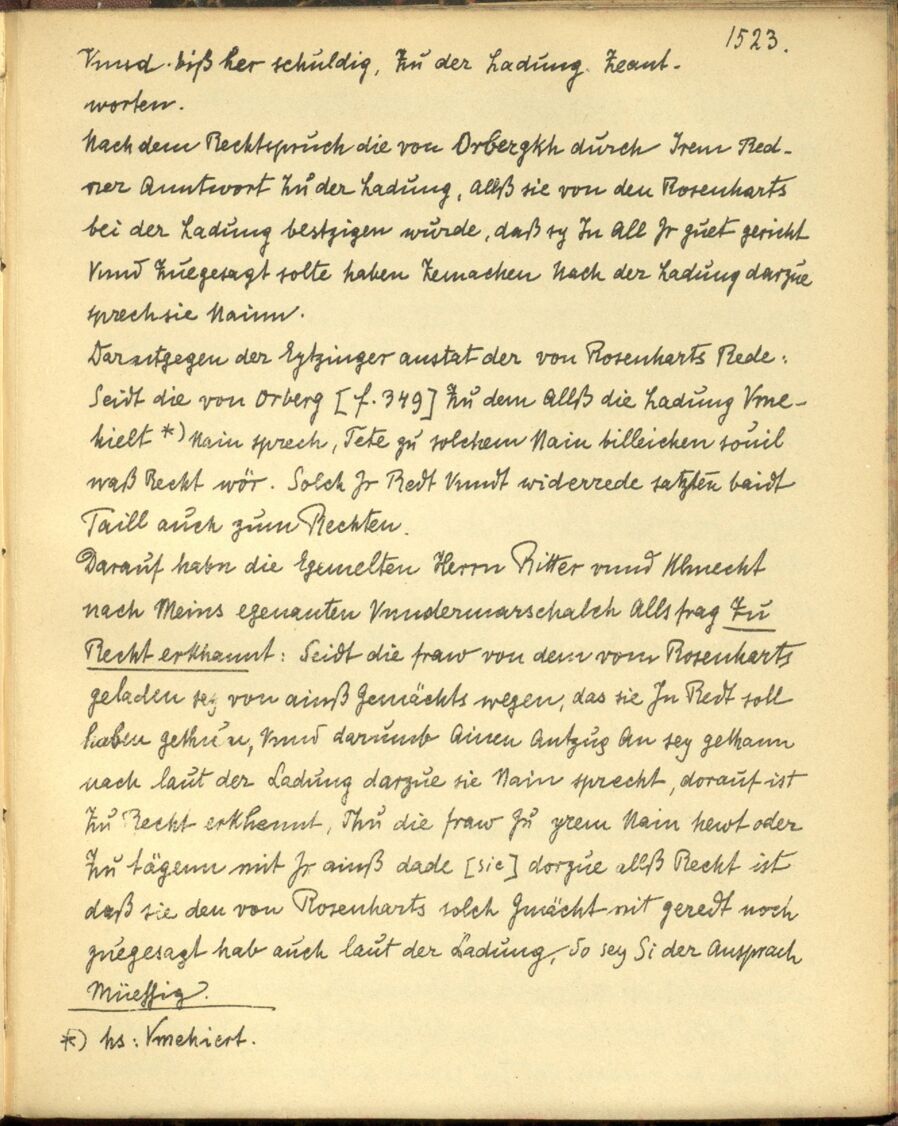 1523.
Vnnd biß her schuldig, Zu der Ladung Zeant-
worten.
Nach dem Rechtspruch die von Orbergkh durch Irem Red-
ner Anntwort Zu der Ladung, Allß sie von den Rosenharts
bei der Ladung bestzigen wurde, daß sy In All Jr guet gericht
Vnnd Zuegesagt solte haben Zemachen Nach der Ladung darzue
sprech sie Nainn.
Darentgegen der Eytzinger anstat der von Rosenharts Rede:
Seidt die von Orberg [f. 349] Zu dem Allß die Ladung Vme-
hielt *) Nain sprech, Tete zu solchem Nain billeichen souil
waß Recht wör. Solch Jr Redt Vnndt widerrede satzten baidt
Taill auch zum Rechten.
Darauf habn die Egemelten Herrn Ritter vnnd Khnecht
nach Meins egenanten Vnndermarschalch Alls frag Zu
Recht erkhannt: Seidt die fraw von dem vom Rosenharts
geladen sey von ainß Gemächts wegen, das sie Jn Redt soll
haben gethun, Vnnd darumb Ainen Antzug An sey gethann
nach laut der Ladung darzue sie Nain sprecht, dorauf ist
Zu Recht erkhennt, Thu die fraw Zu yrem Nain hewt oder
Zu tägenn mit Jr ainß dade [sic] dorzue allß Recht ist
daß sie den von Rosenharts solch Gmächt nit geredt noch
zuegesagt hab auch laut der Ladung, So sey Si der Ansprach
Müessig.
*) hs: Vmehiert.